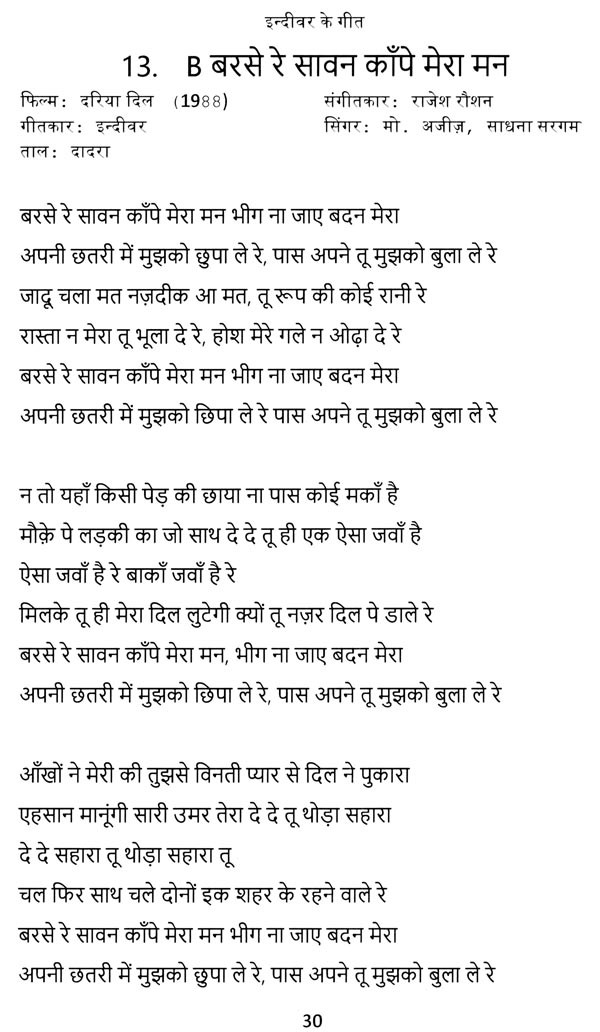 इन्दीवर के गीत
13. B बरसे रे सावन काँपे मेरा मन
फिल्म: दरिया दिल (1988) संगीतकार: राजेश रौशन
गीतकार: इन्दीवर सिंगर: मो. अजीज़, साधना सरगम
ताल: दादरा
बरसे रे सावन काँपे मेरा मन भीग ना जाए बदन मेरा
अपनी छतरी में मुझको छुपा ले रे, पास अपने तू मुझको बुला ले रे
जादू चला मत नज़दीक आ मत, तू रूप की कोई रानी रे
रास्ता न मेरा तू भूला दे रे, होश मेरे गले न ओढ़ा दे रे
बरसे रे सावन काँपे मेरा मन भीग ना जाए बदन मेरा
अपनी छतरी में मुझको छिपा ले रे पास अपने तू मुझको बुला ले रे
न तो यहाँ किसी पेड़ की छाया ना पास कोई मकाँ है
मौक़े पे लड़की का जो साथ दे दे तू ही एक ऐसा जवाँ है
ऐसा जवाँ है रे बाकाँ जवाँ है रे
मिलके तू ही मेरा दिल लुटेगी क्यों तू नज़र दिल पे डाले रे
बरसे रे सावन काँपे मेरा मन, भीग ना जाए बदन मेरा
अपनी छतरी में मुझको छिपा ले रे, पास अपने तू मुझको बुला ले रे
आँखों ने मेरी की तुझसे विनती प्यार से दिल ने पुकारा
एहसान मानूंगी सारी उमर तेरा दे दे तू थोड़ा सहारा
दे दे सहारा तू थोड़ा सहारा तू
चल फिर साथ चले दोनों इक शहर के रहने वाले रे
बरसे रे सावन काँपे मेरा मन भीग ना जाए बदन मेरा
अपनी छतरी में मुझको छुपा ले रे, पास अपने तू मुझको बुला ले रे
30